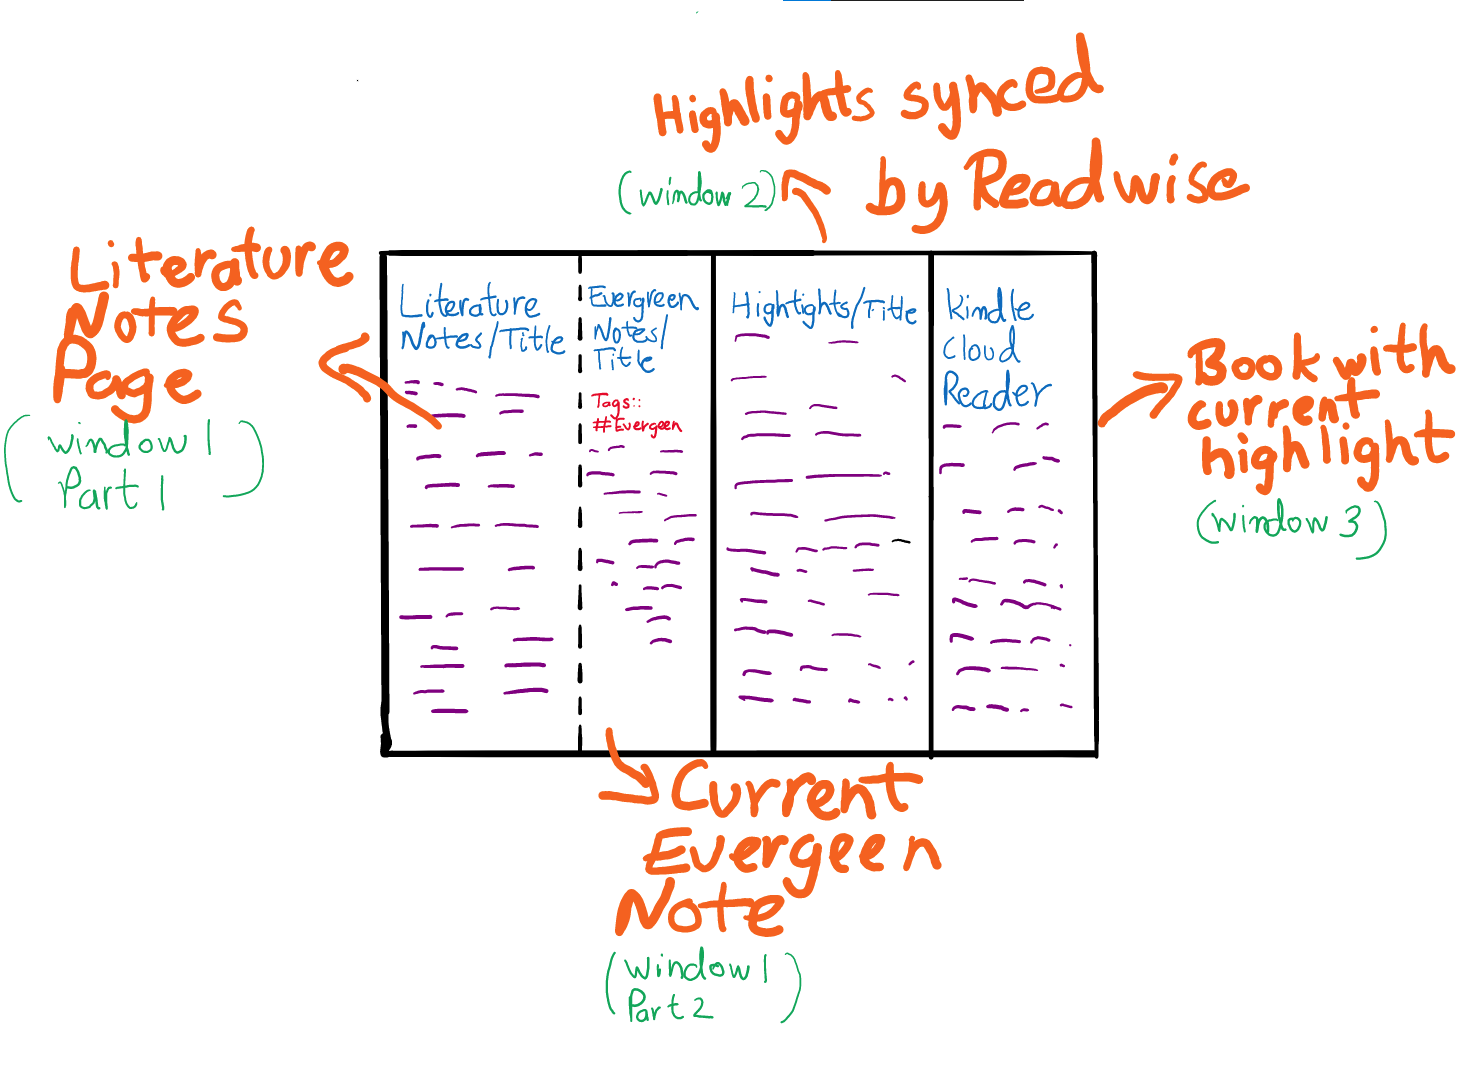 Highlights synced
by Readwise
(window 2)
Literature
Notes
Page
(window 1
Part 1)
Literature
Notes/Title
Evergreen
Notes/
Title
Tags::
#Evergeen
Hightights/Title
Kindle
Cloud
Reader
Book with
current
highlight
(window 3)
Current
Evergeen
Note
(window 1
Part 2)